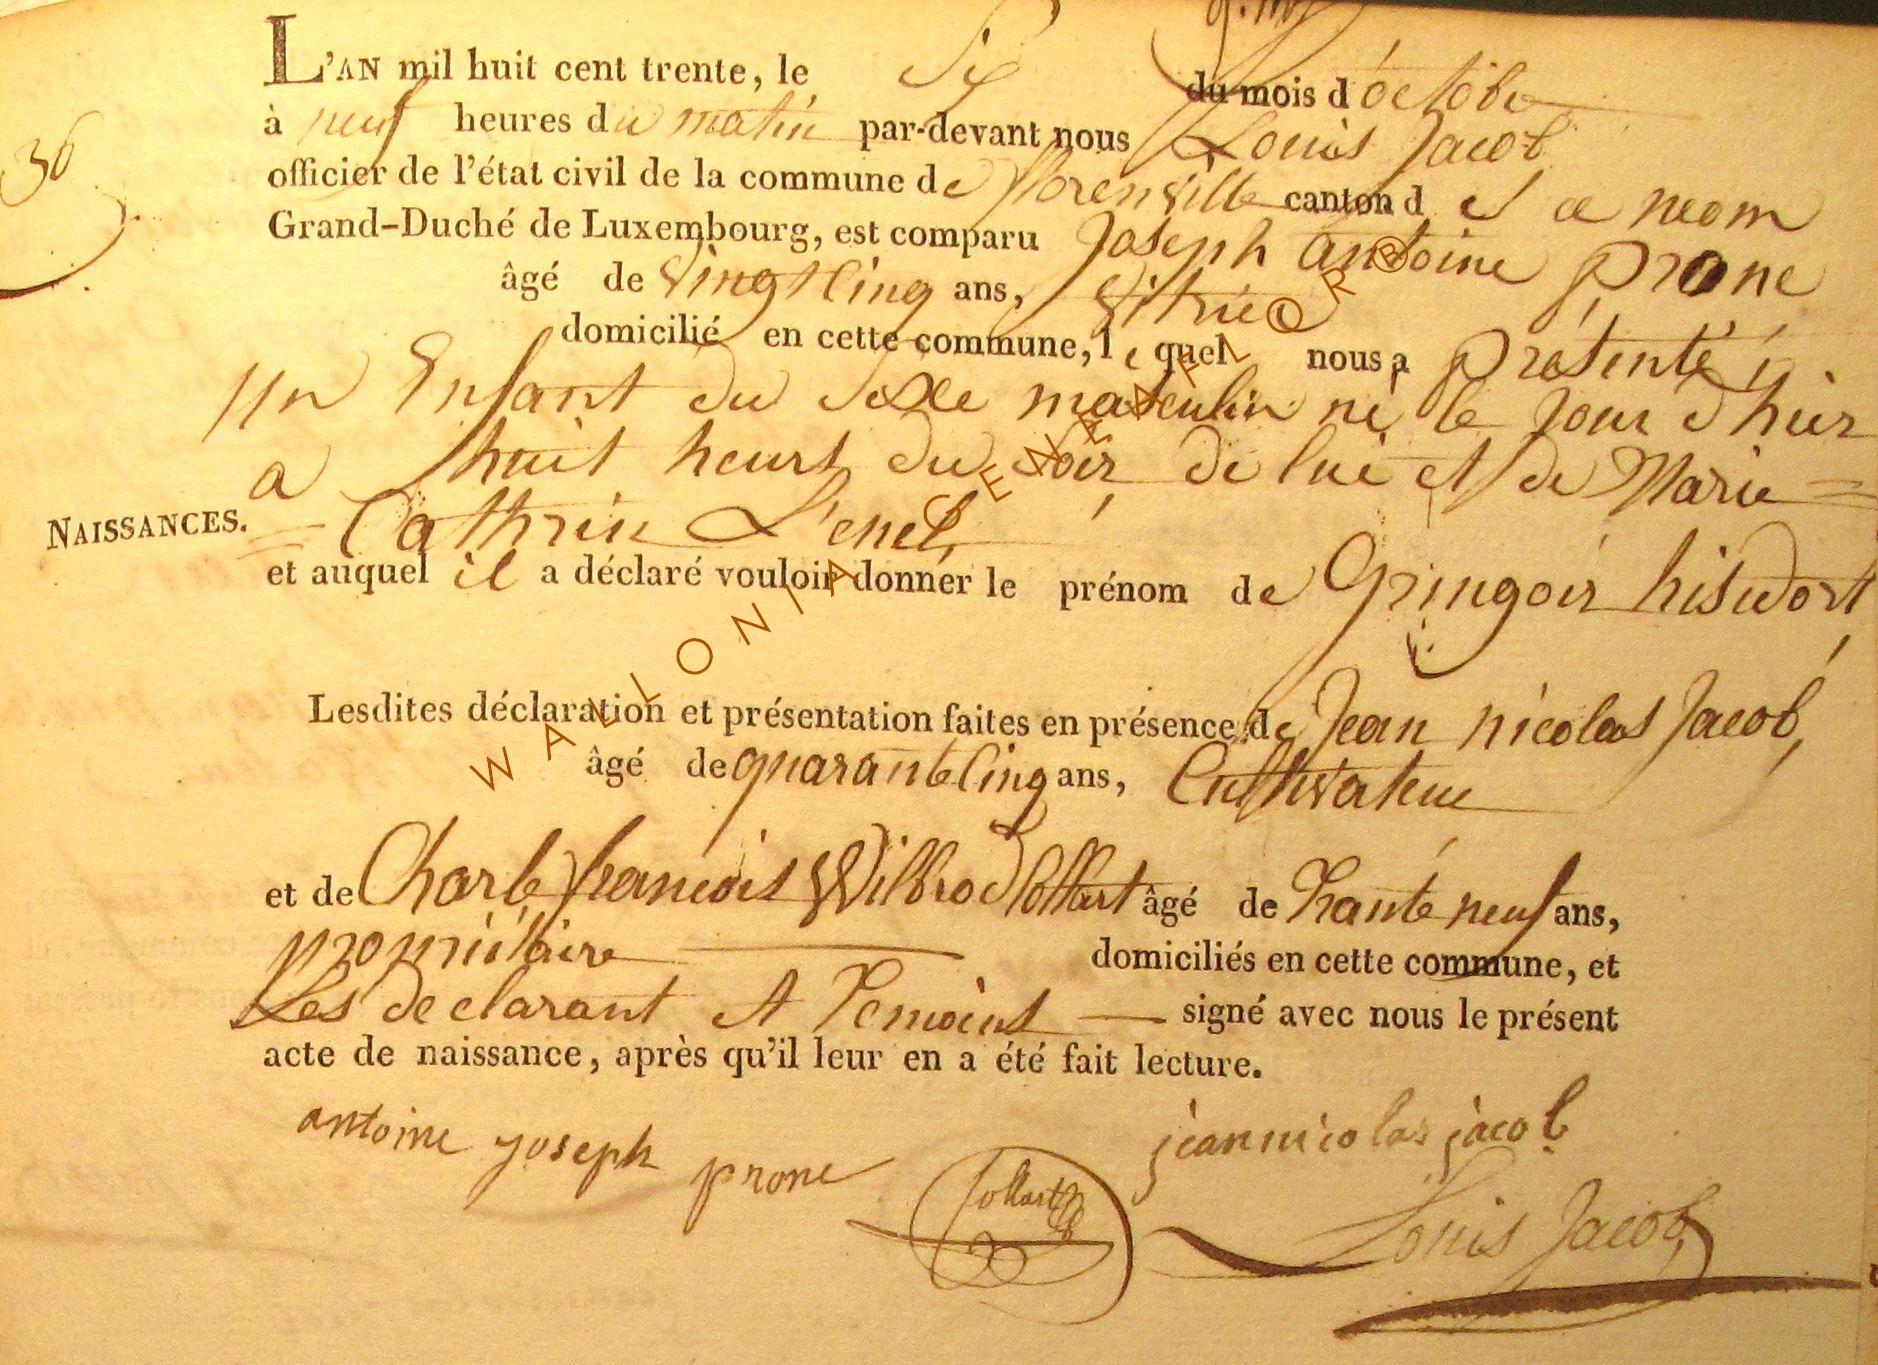 L'AN mil huit cent trente, le Six du mois d'octobre
à neuf heures du matin par-devant nous Louis Jacob
36
officier de l'état civil de la commune de florenville canton d et ce neom
Grand-Duché de Luxembourg, est comparu Joseph antoine prone
âgé de Vingt Cinq ans, Vitrier
domicilié en cette commune, le quel nous a présenté
un Enfant du Sexe masculin né le jour d'hier
a huit heurs du Soir de lui et de Marie =
= Cathrin Lenel,
NAISSANCES.
et auquel il a déclaré vouloir donner le prénom de
Lesdites déclaration et présentation faites en présence de Jean nicolas Jacob,
âgé de quarante Cinq ans, Cultivateur
et de Charle francois Wilbrod Collart âgé de trante neuf ans,
propriétaire domiciliés en cette commune, et
Les declarant et Temoins signé avec nous le présent
acte de naissance, après qu'il leur en a été fait lecture.
antoine joseph prone
jean nicolas jacob
Collart
Louis Jacob
WALLONIA GENEAFLORE ®